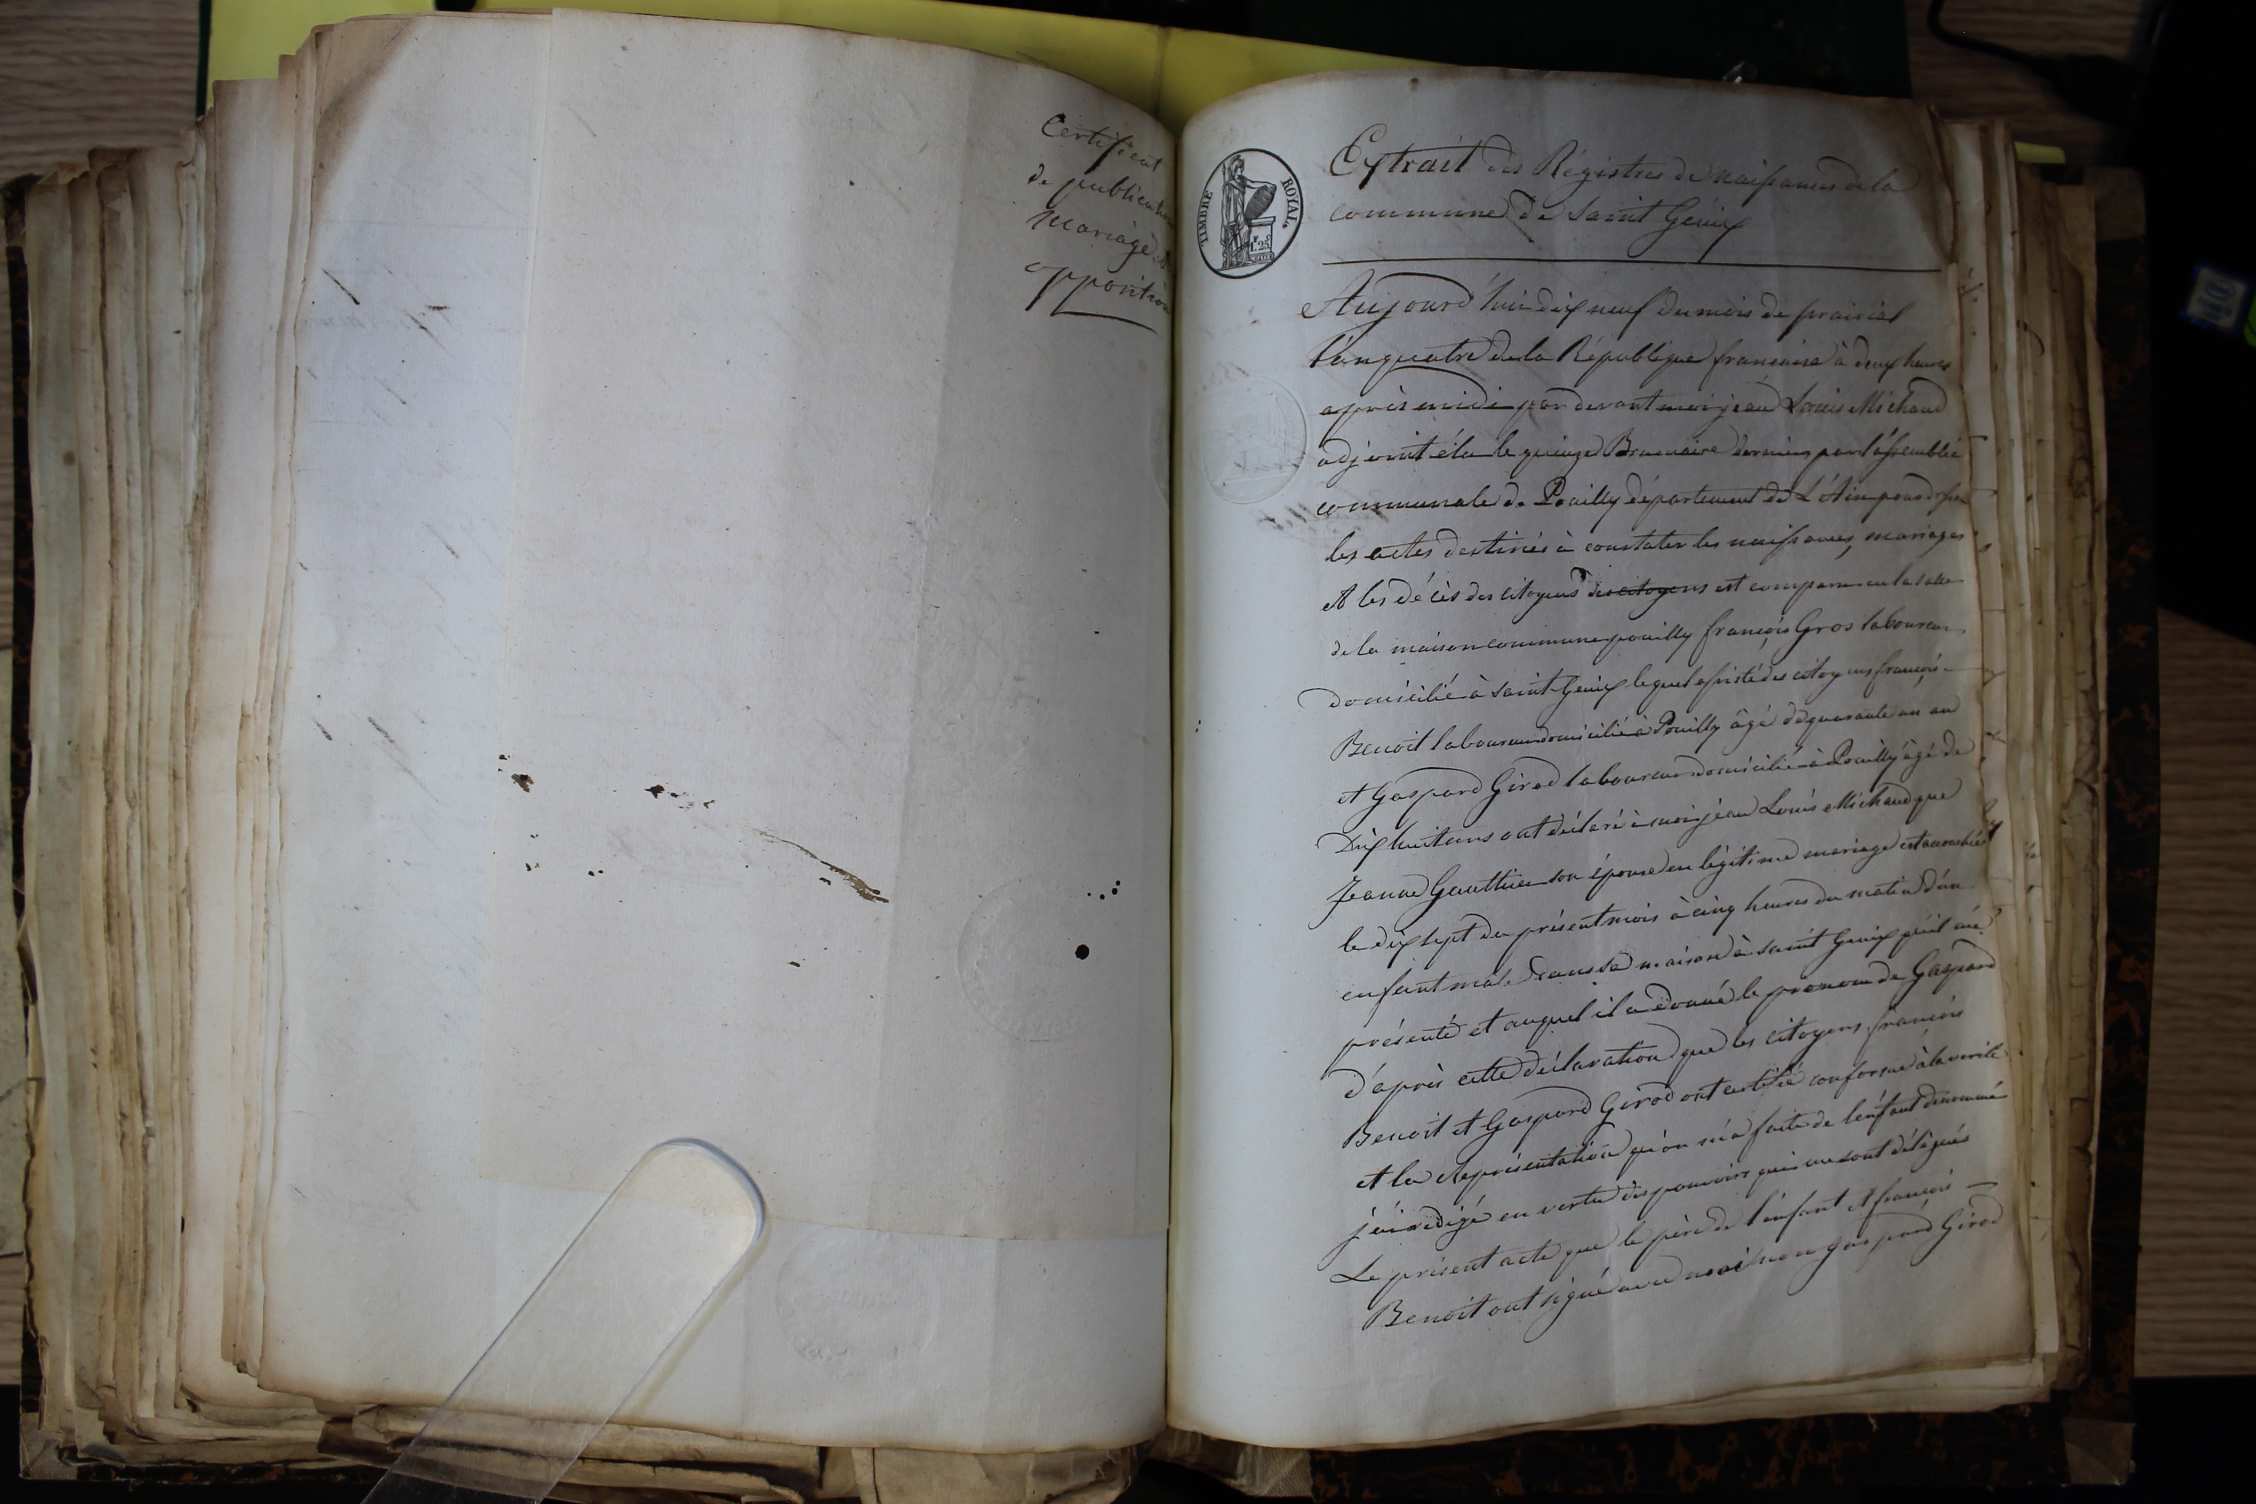 Certificat
de publication
mariage
opposition
TIMBRE ROYAL
1.25
Extrait des Régistres de naissances de la
commune de Saint Genix
Aujourd'hui dix neuf du mois de prairial
l'an quatre de la République francaise à deux heures
après midi par devant moi jean Louis Michaud
adjoint élu le quinze Brumaire dernier par l'assemblée
communale de Pouilly département de L'Ain pour
les actes destinés à constater les naissances, mariages
et les décès des citoyens des citoyens est comparu en la salle
de la maison commune pouilly françois Gros laboureur
domicilié à Saint Genix lequel assisté des citoyens françois
Benoit laboureur domicilié à Pouilly âgé de quarante un an
et Gaspard Girod laboureur domicilié à Pouilly âgé de
Dix huit ans ont déclaré à moi jean Louis Michaud que
Jeanne Gauthier son épouse en légitime mariage est accouchée
le dix sept du présent mois à cinq heures du matin d'un
enfant male dans sa maison à saint Genix qu'il m'a
présenté et auquel il a donné le prenom de Gaspard
d'après cette déclaration que les citoyens françois
Benoit et Gaspard Girod ont certifié conforme à la verité
et la représentation qu'on m'a faite de l'enfant dénommé
j'ai redigé en vertu des pouvoirs qui me sont délégués
Le présent acte que le père de l'enfant et françois
Benoit ont signé avec moi non gaspard Girod